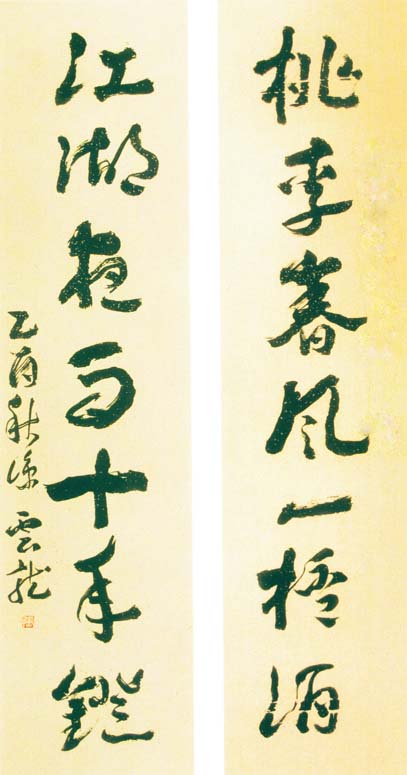 桃李春风一桮酒
江湖夜雨十年鐙
乙酉秋涼 雲龍